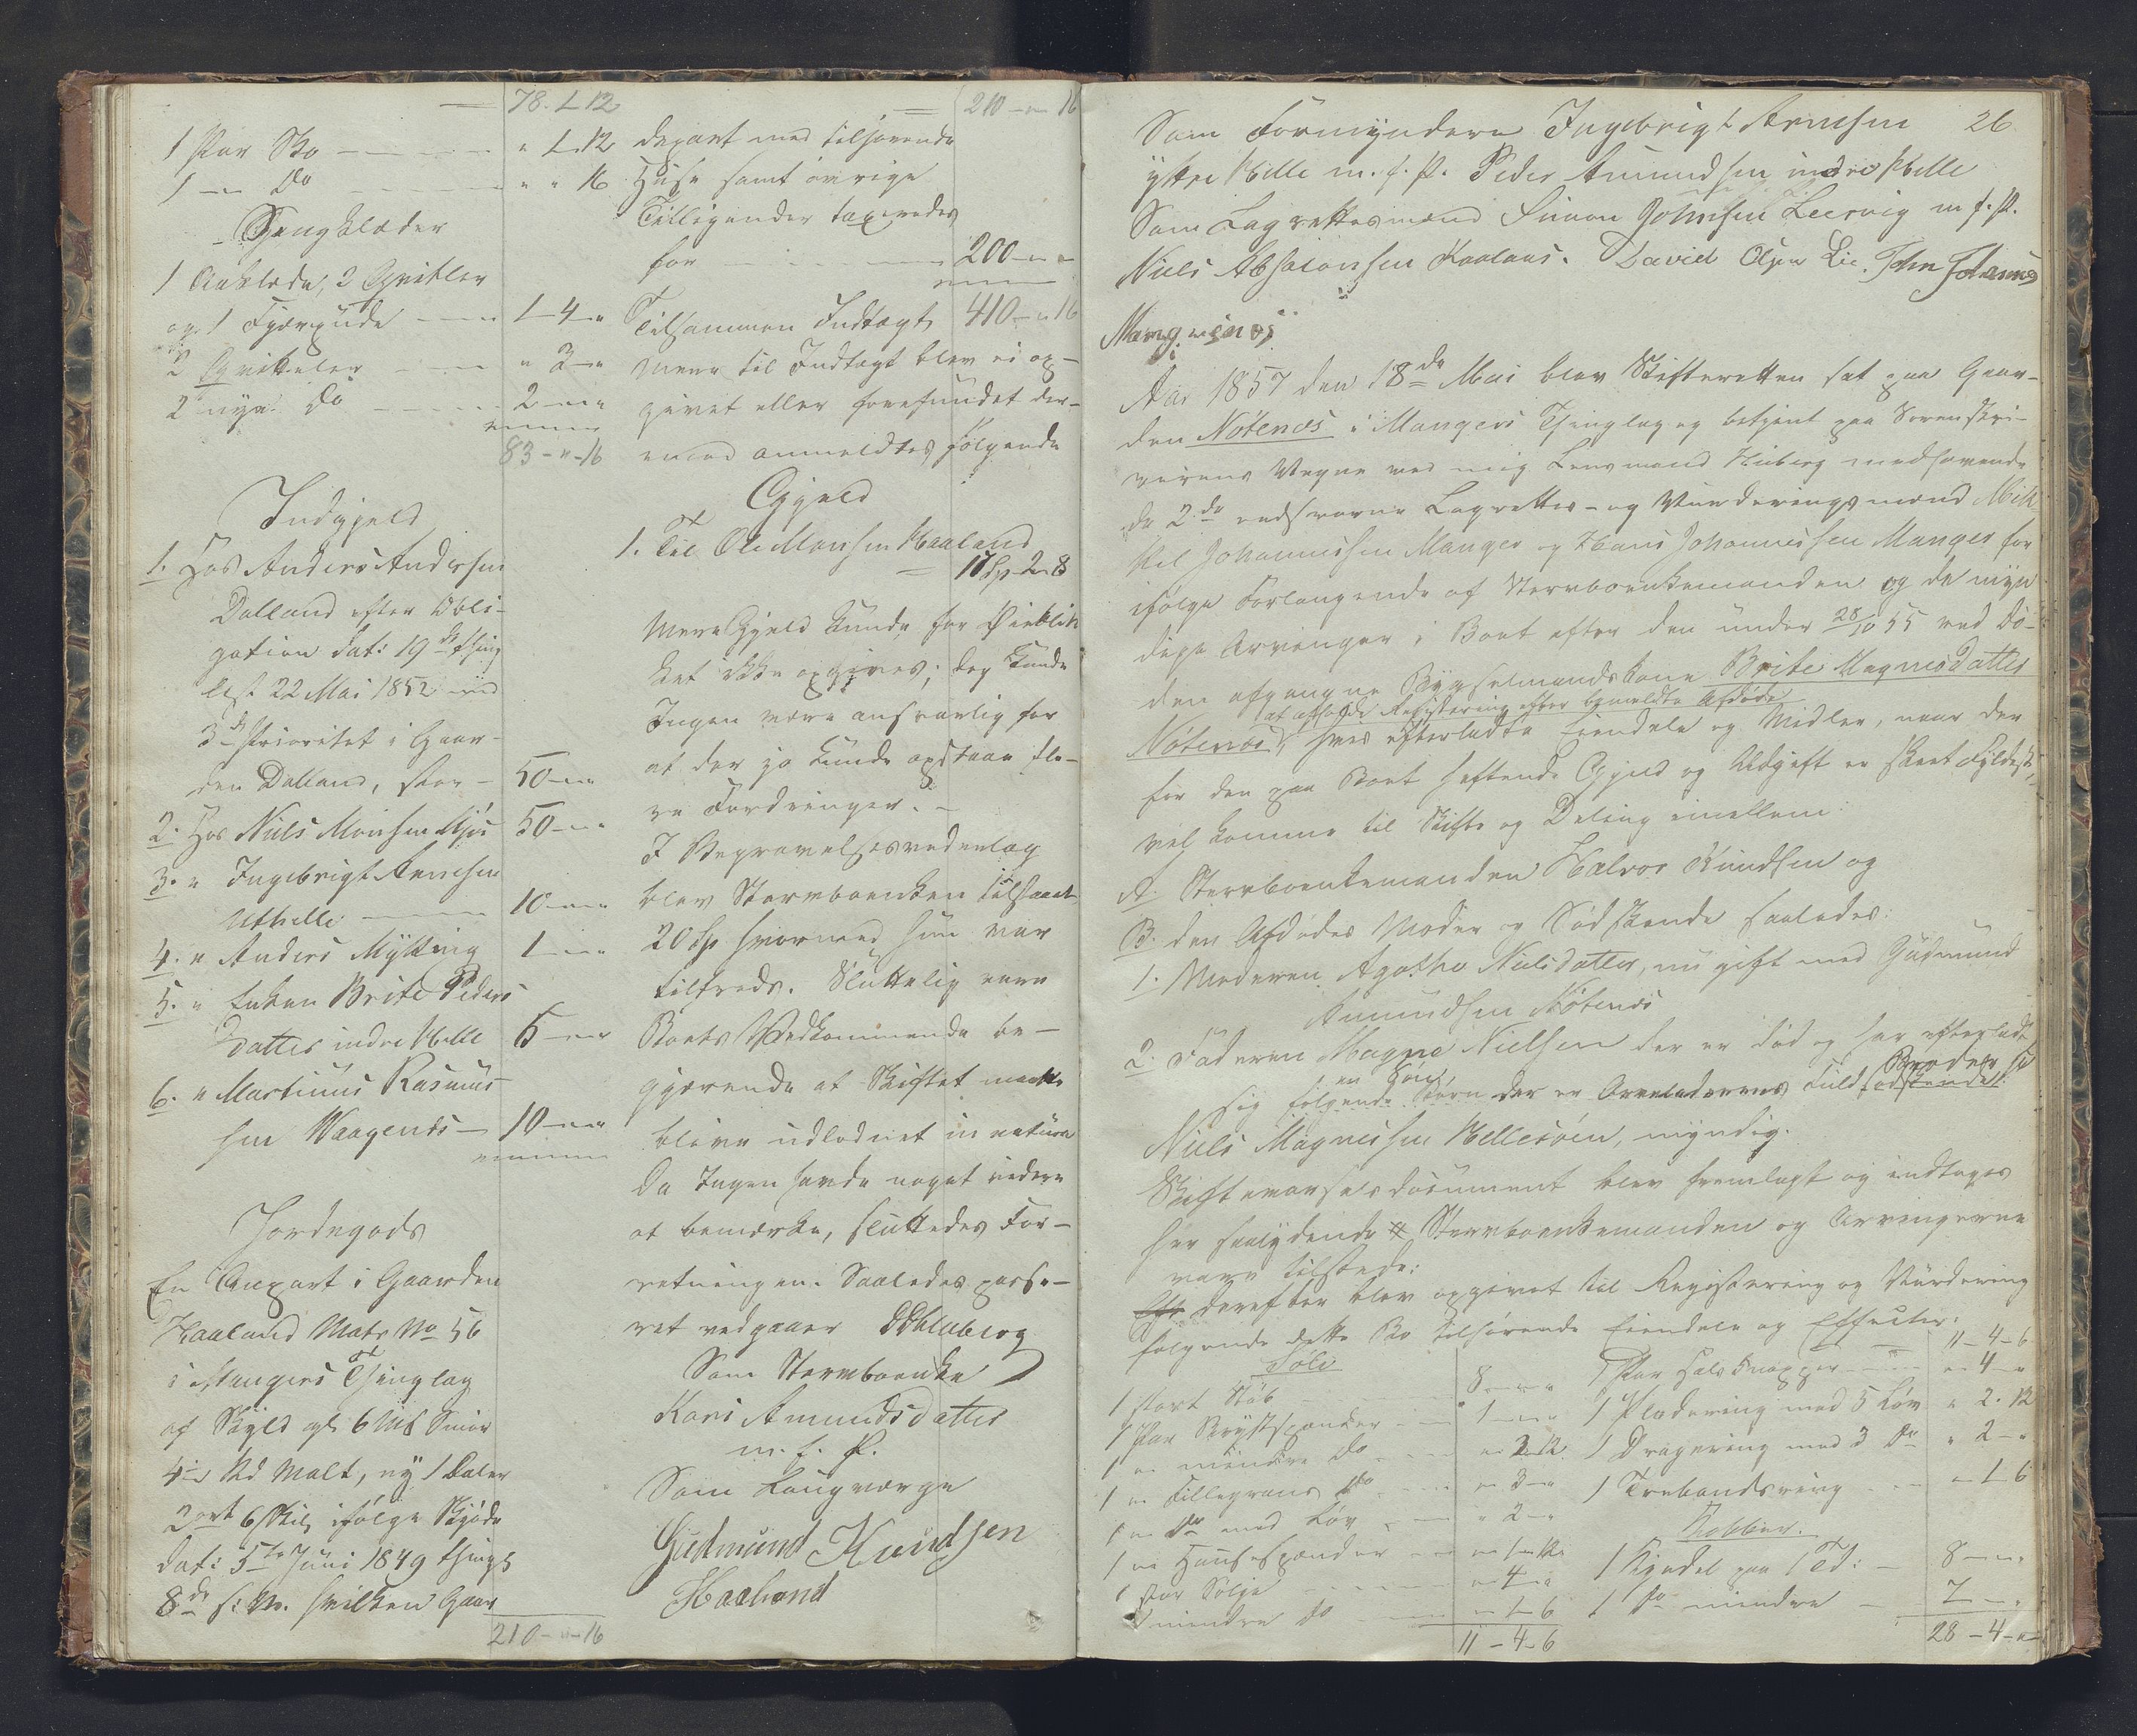 78. 1. 12
1 Par Sko — " 1. 12
1 — Do — " " 16
Sengklæder
1 Aaklæde, 2 Hvitler
og 1 Fjærpude — 1-4-"
2 Hvitteler — " 3-"
2 nye Do — 2-"-"
83-"-16
Indgjeld
1. Hos Anders Andersen
Dalland efter Obli-
gation dat: 19de thing
læst 22 Mai 1852 med
3de Prioritet i Gaar-
den Dalland, stor — 50-"-"
2. Hos Niels Monsen Mjøs 50-"-"
3. " Ingebrigt Arnesen
Uthelle — 10-"-"
4. " Anders Mykting 1-"-"
5. " Enken Brite Peders
datter indre Helle 5-"-"
6. " Martinus Rasmus-
sen Waagenes — 10-"-"
Jordegods
En Anpart i Gaarden
Haaland Matr No 56
i Mangers Thinglag
af Skyld gl 6 Mk Smør
4 Kd Malt, ny 1 Daler
2 ort 6 Skil ifølge Skjøde
dat: 5te Juni 1849 thingl
8de s: M. hvilken Gaar
210-"-16
210-"-16
depart med tilhørende
Huse samt øvrige
Tilligender taxeredes
for — 200-"-"
Tilsammen Indtægt 410-"-16
Mere til Indtægt blev ei op-
givet eller forefundet der-
imod anmeldtes følgende
Gjeld
1. Til Ole Monsen Haaland
= 17 Sp 2-8
Mere Gjeld kunde for Øieblik
ket ikke opgives; dog kunde
Ingen være ansvarlig for
at der jo kunde opstaae fle-
re Fordringer. —
I Begravelsesvederlag
blev Stervboenken tilstaaet
20 Sp hvormed hun var
tilfreds. Sluttelig vare
Boets Vedkommende be-
gjærende at Skiftet maatte
blive udlodnet in natura
Da Ingen havde noget videre
at bemærke, sluttedes For-
retningen. Saaledes passe-
ret vedgaaer
Som Stervboenke
Kari Amundsdatter
m. f. P.
Som Laugværge
Gudmund Knudsen
Haaland
26
Som Formyndere Ingebrigt Arnesen
yttre Helle m. f. P. Peder Amundsen indre Helle
Som Lagrettesmænd Simon Johnsen Leervig m f. P.
Niels Absalonsen Kaalaas. David Olsen Lie. John Johannes
Mangersnes
Aar 1857 den 18de Mai blev Skifteretten sat paa Gaar-
den Nøtenæs i Mangers Thinglag og betjent paa Sorenskri-
verens Vegne ved mig Lensmand Hiiberg medhavende
de 2de eedsvorne Lagrettes- og Vurderingsmænd Mik
kel Johannessen Manger og Hans Johannessen Manger for
ifølge Forlangende af Stervboenkemanden og de myn
dige Arvinger i Boet efter den under 28/10 55 ved Dø-
den afgangne Bygselmandskone Brite Magnesdatter
at afholde Registrering efter bemeldte Afdøde
Nøtenæs, hvis efterladte Eiendele og Midler, naar der
for den paa Boet heftende Gjeld og Udgift er skeet Fyldest,
vil komme til Skifte og Deling imellem:
A. Stervboenkemanden Halvor Knudsen og
B. den Afdødes Moder og Sødskende saaledes:
1. Moderen Agathe Nielsdatter, nu gift med Gudmund
Amundsen Nøtenæs
2. Faderen Magne Nielsen der er død og har efterladt
en Søn, Broder
sig følgende Børn der er Arveladerens Fuldsødskende
Niels Magnessen Hellesøen, myndig.
Skiftevarselsdocument blev fremlagt og indtages
her saalydende # Stervboenkemanden og Arvingerne
vare tilstede:
derefter blev opgivet til Registrering og Vurdering
følgende dette Bo tilhørende Eiendele og Effecter:
Sølv
1 stort Støb 8-"-"
1 Par Brystspænder — 1-"-"
1 " mindre do — " 2-12
1 " Fillegrans Do — " 3-"
1 " Do med Løv — " 2-"
1 " Hansespænder
1 stor Sølje — " 4-"
1 mindre do — " 1-6
11-4-6
11-4-6
1 Par Halsknapper — " 4-"
1 Pladering med 5 Løv " 2. 12
1 Dragering med 3 Do " 2-"
1 Trebandsring — " 1-6
Kobber.
1 Kjedel paa 1 Td: — 8-"-"
1 Do mindre — 7-"-"
28-4-"